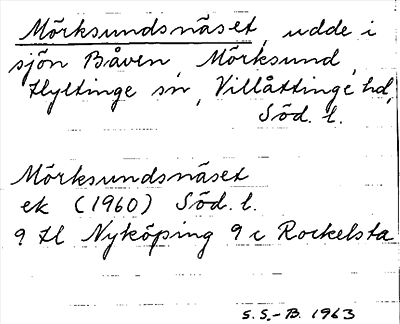 Mörksundsnäset, udde i
sjön Båven, Mörksund,
Hyltinge sn, Villåttinge hd,
Söd. l.
Mörksundsnäset
ek (1960) Söd. l.
9 H Nyköping 9 c Rockelsta
S.S.-B. 1963